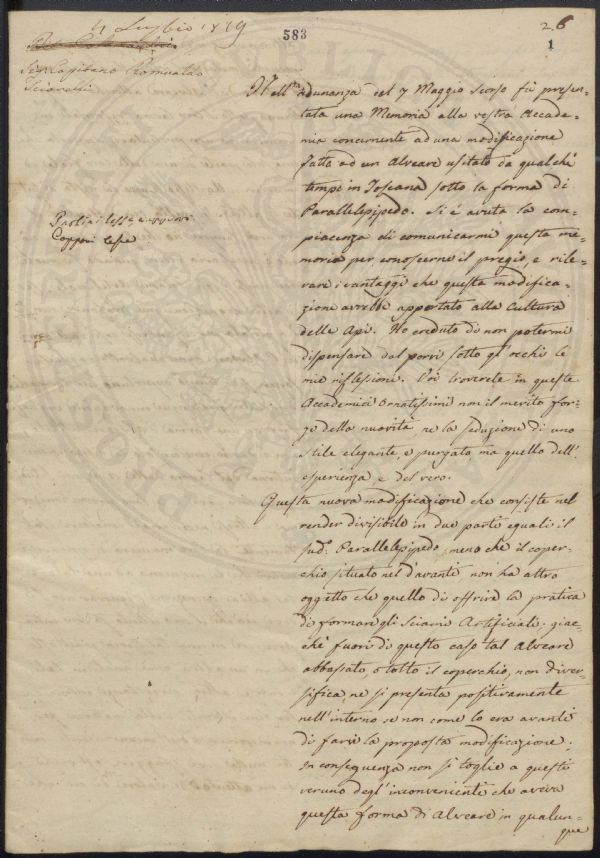 4 Luglio 1819
583
26
1
Sig. Capitano Romualdo
Nell' adunanza del 7 Maggio scorso fù presen-
tata una Memoria alla vostra Accade-
mia concernente ad una modificazione
fatta ad un Alveare usitato da qualche
tempo in Toscana sotto la forma di
Parallelepipedo. Si è avuta la com-
piacenza di comunicarmi questa me-
moria per conoscerne il pregio, e rile-
vare i vantaggi che questa modifica-
zione avrebbe apportato alla Cultura
delle Api. Ho creduto di non potermi
dispensare dal porvi sotto gl' occhi le
mie riflessioni. Voi troverete in queste
Accademici Ornatissimi non il merito for-
se della nuovità, ne la seduzione di uno
stile elegante, e purgato ma quello dell'
esperienza, e del vero.
Questa nuova modificazione che consiste nel
render divisibile in due parti eguali il
sud.° Parallelepipedo, meno che il coper-
chio situato nel d'avanti non ha altro
oggetto che quello di offrire la pratica
di formare gli Sciami Artificiali; giac-
chè fuori di questo caso tal Alveare
abbassato o tolto il coperchio, non diver-
sifica, ne si presenta positivamente
nell' interno se non come lo era avanti
di farvi la proposta modificazione.
In conseguenza non si toglie a questi
veruno degl' inconvenienti che aveva
questa forma di Alveare in qualun-
que